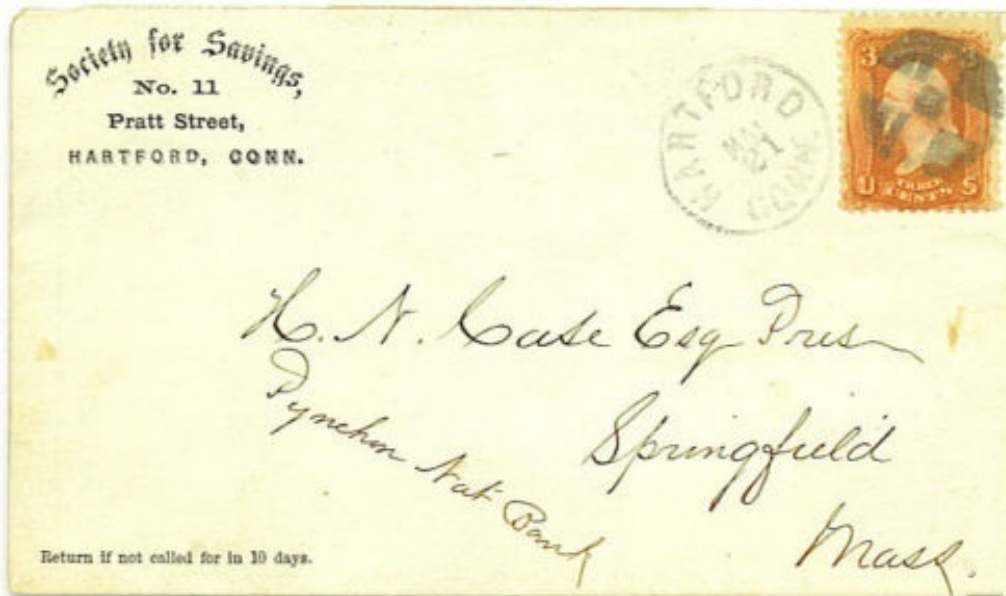 Society for Savings,
No. 11
Pratt Street,
HARTFORD, CONN.
HARTFORD
21
CONN
3
U THREE CENTS S
H. N. Case Esq Pres
Pynchon Nat Bank
Springfield
Mass.
Return if not called for in 10 days.